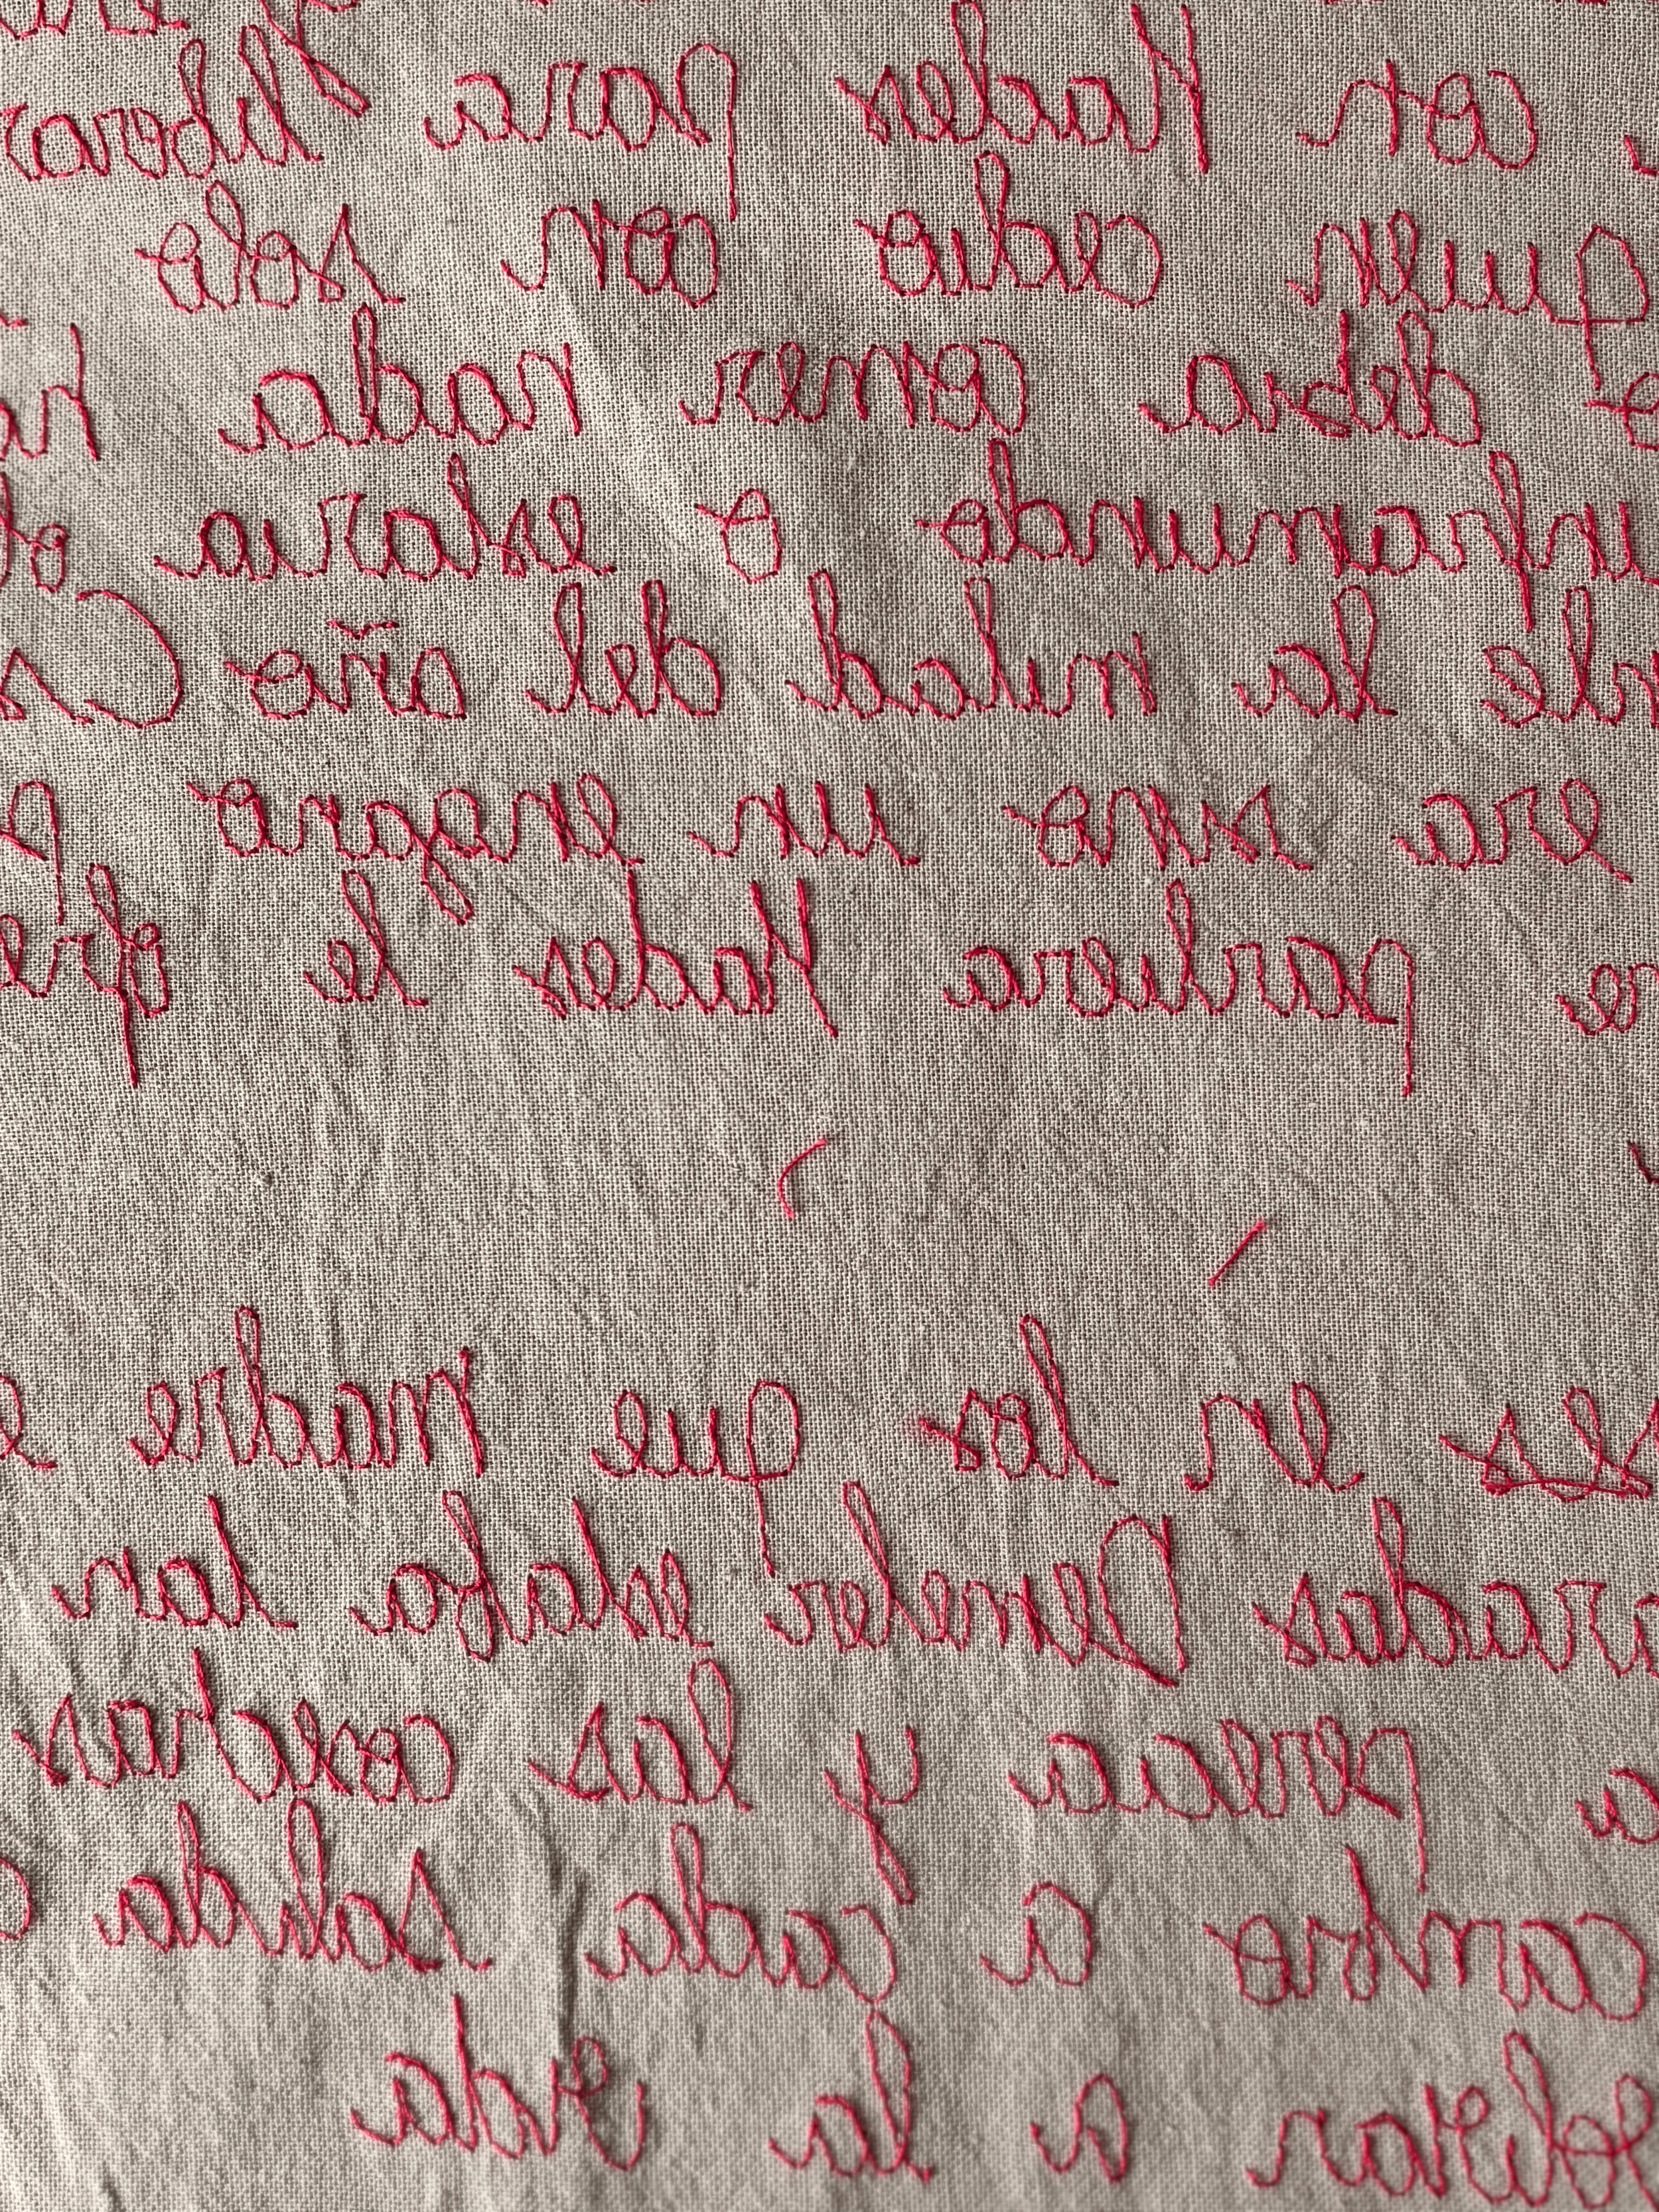 con Hades para liberar
quien cedio con solo
debia comer nada
inframundo o estaria
la mitad del año
era sino un engano
partiera Hades le
en los que madre
Demeter estaba tan
perecia y las cosechas
cambio a cada salida
a la vida